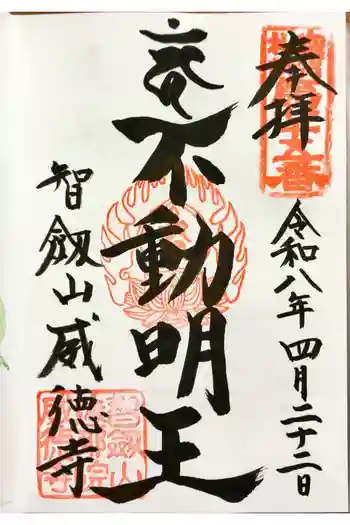 奉拝
令和八年四月二十二日
不動明王
智劔山威徳寺